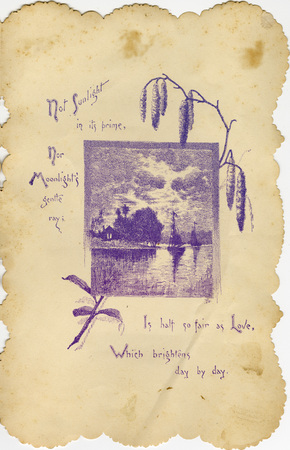 Not Sunlight
in its prime,
Nor
Moonlight's
gentle
ray;
Is half so fair as Love,
Which brightens
day by day.